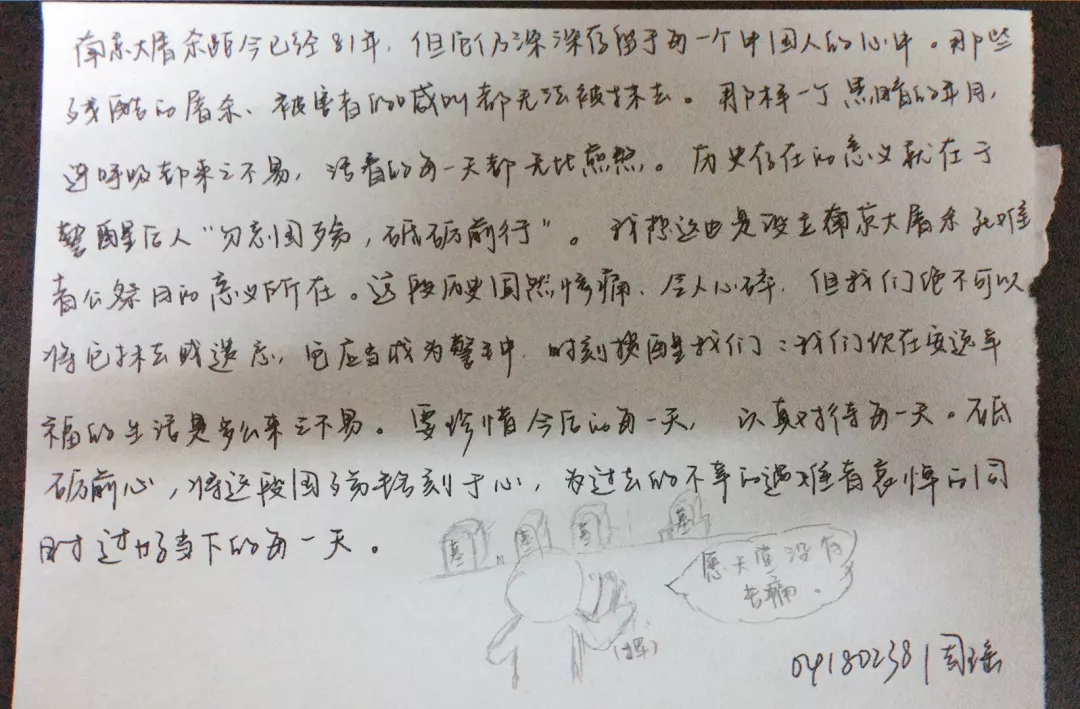 南京大屠杀距今已经81年,但它仍深深存留于每一个中国人的心中。那些
残酷的屠杀、被害者的喊叫都无法被抹去。那样一个黑暗的年月,
连呼吸都来之不易,活着的每一天都无比煎熬。历史存在的意义就在于
警醒后人“勿忘国殇,砥砺前行”。我想这也是设立南京大屠杀死难
者公祭日的意义所在。这段历史固然惨痛、令人心碎,但我们绝不可以
将它抹去或遗忘,它应当成为警钟,时刻提醒我们:我们现在安逸幸
福的生活是多么来之不易。要珍惜今后的每一天,认真对待每一天。砥
砺前心,将这段国殇铭刻于心,为过去的不幸的遇难者哀悼的同
时过好当下的每一天。
墓 墓 墓 墓
愿天堂没有
苦痛。
(挥)
04180238 周瑶